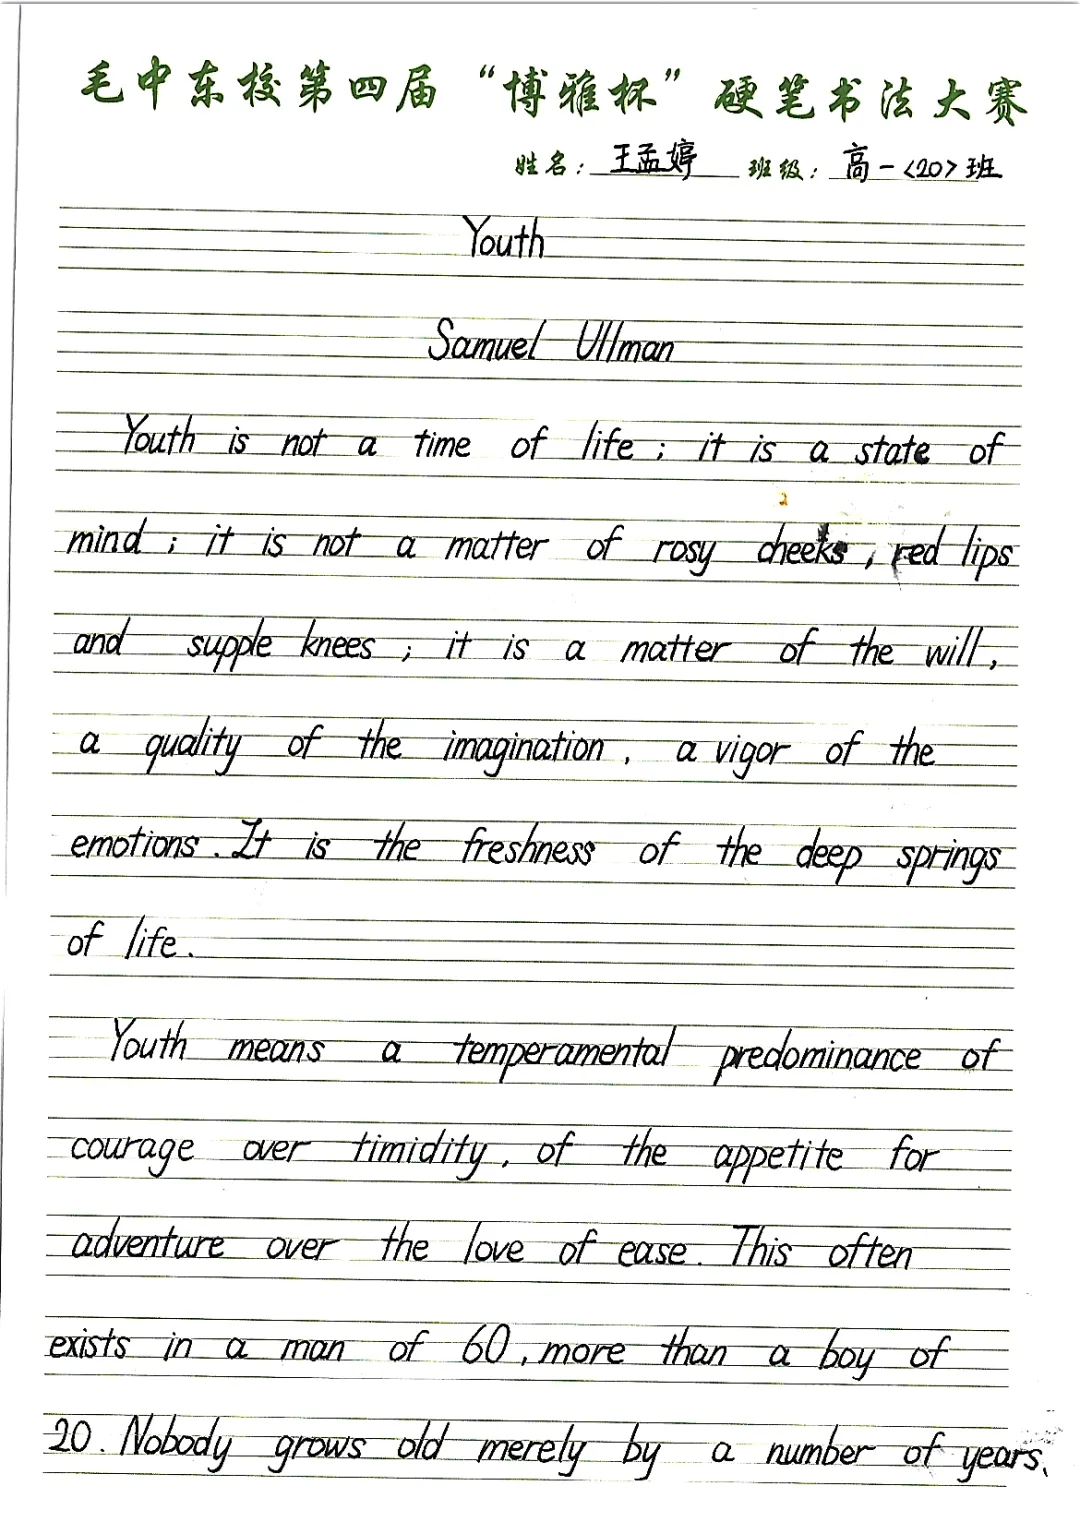 毛中东校第四届“博雅杯”硬笔书法大赛
姓名：王孟婷 班级：高一<20>班
Youth
Samuel Ullman
Youth is not a time of life ; it is a state of
mind ; it is not a matter of rosy cheeks , red lips
and supple knees ; it is a matter of the will ,
a quality of the imagination , a vigor of the
emotions . It is the freshness of the deep springs
of life .
Youth means a temperamental predominance of
courage over timidity , of the appetite for
adventure over the love of ease . This often
exists in a man of 60 , more than a boy of
20 . Nobody grows old merely by a number of years .